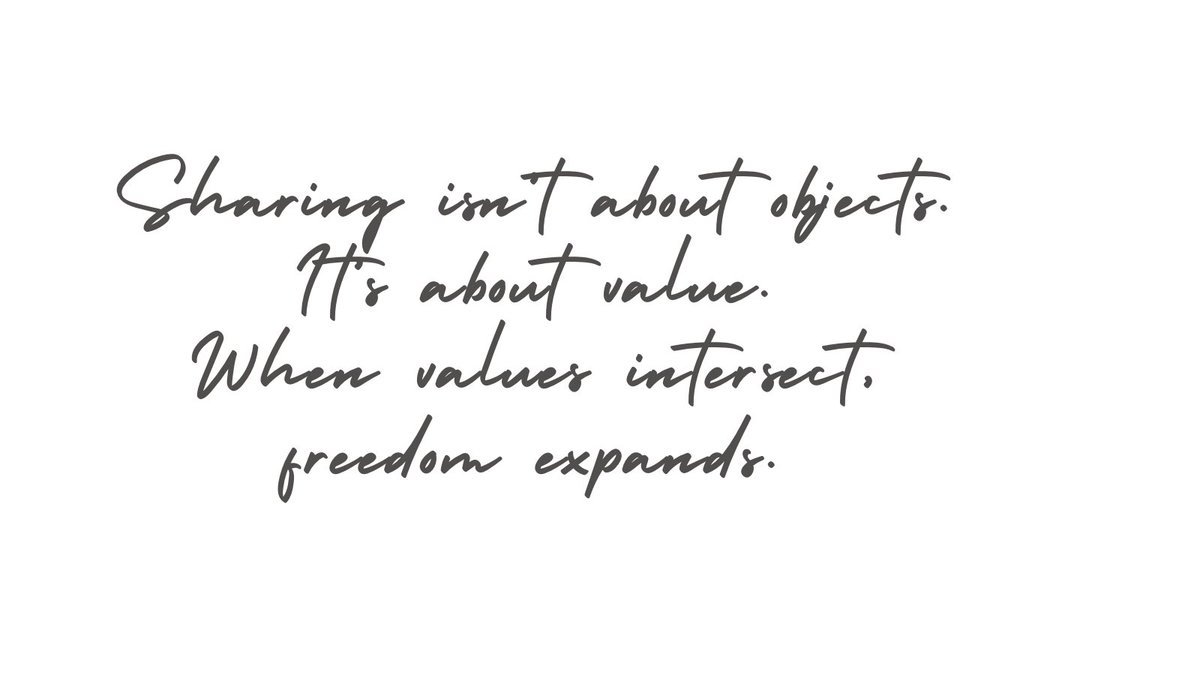 Sharing isn't about objects.
It's about value.
When values intersect,
freedom expands.